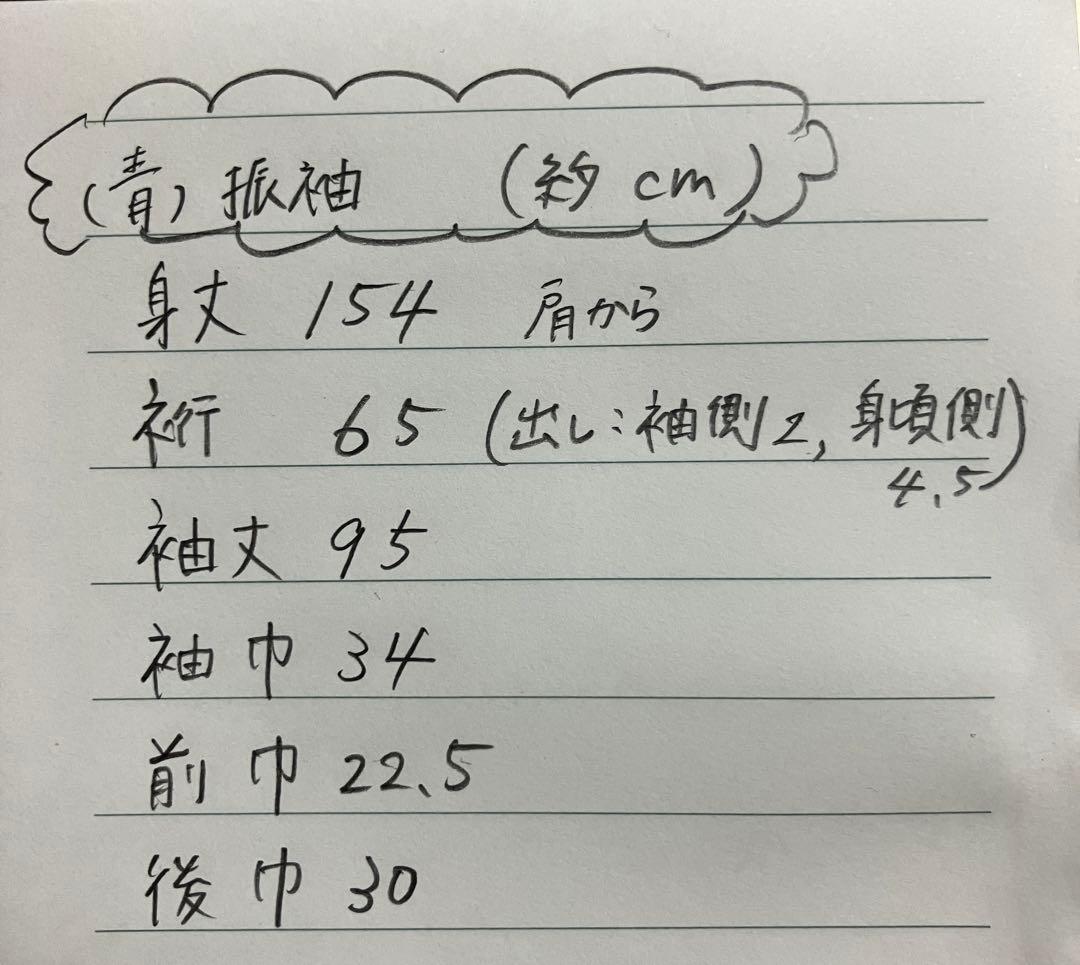 (青)振袖 (約 cm)
身丈 154 肩から
裄 65 (出し:袖側2, 身頃側4.5)
袖丈 95
袖巾 34
前巾 22.5
後巾 30